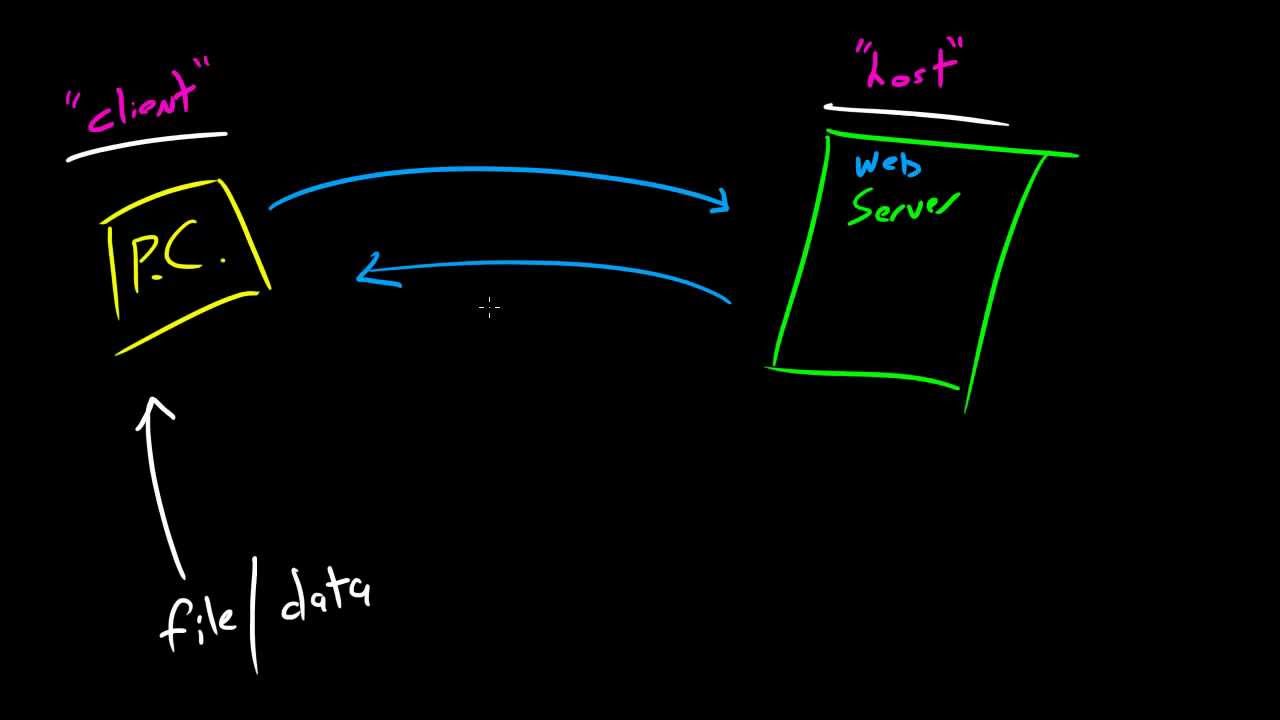 "client"
"host"
P.C.
Web
Server
file/data